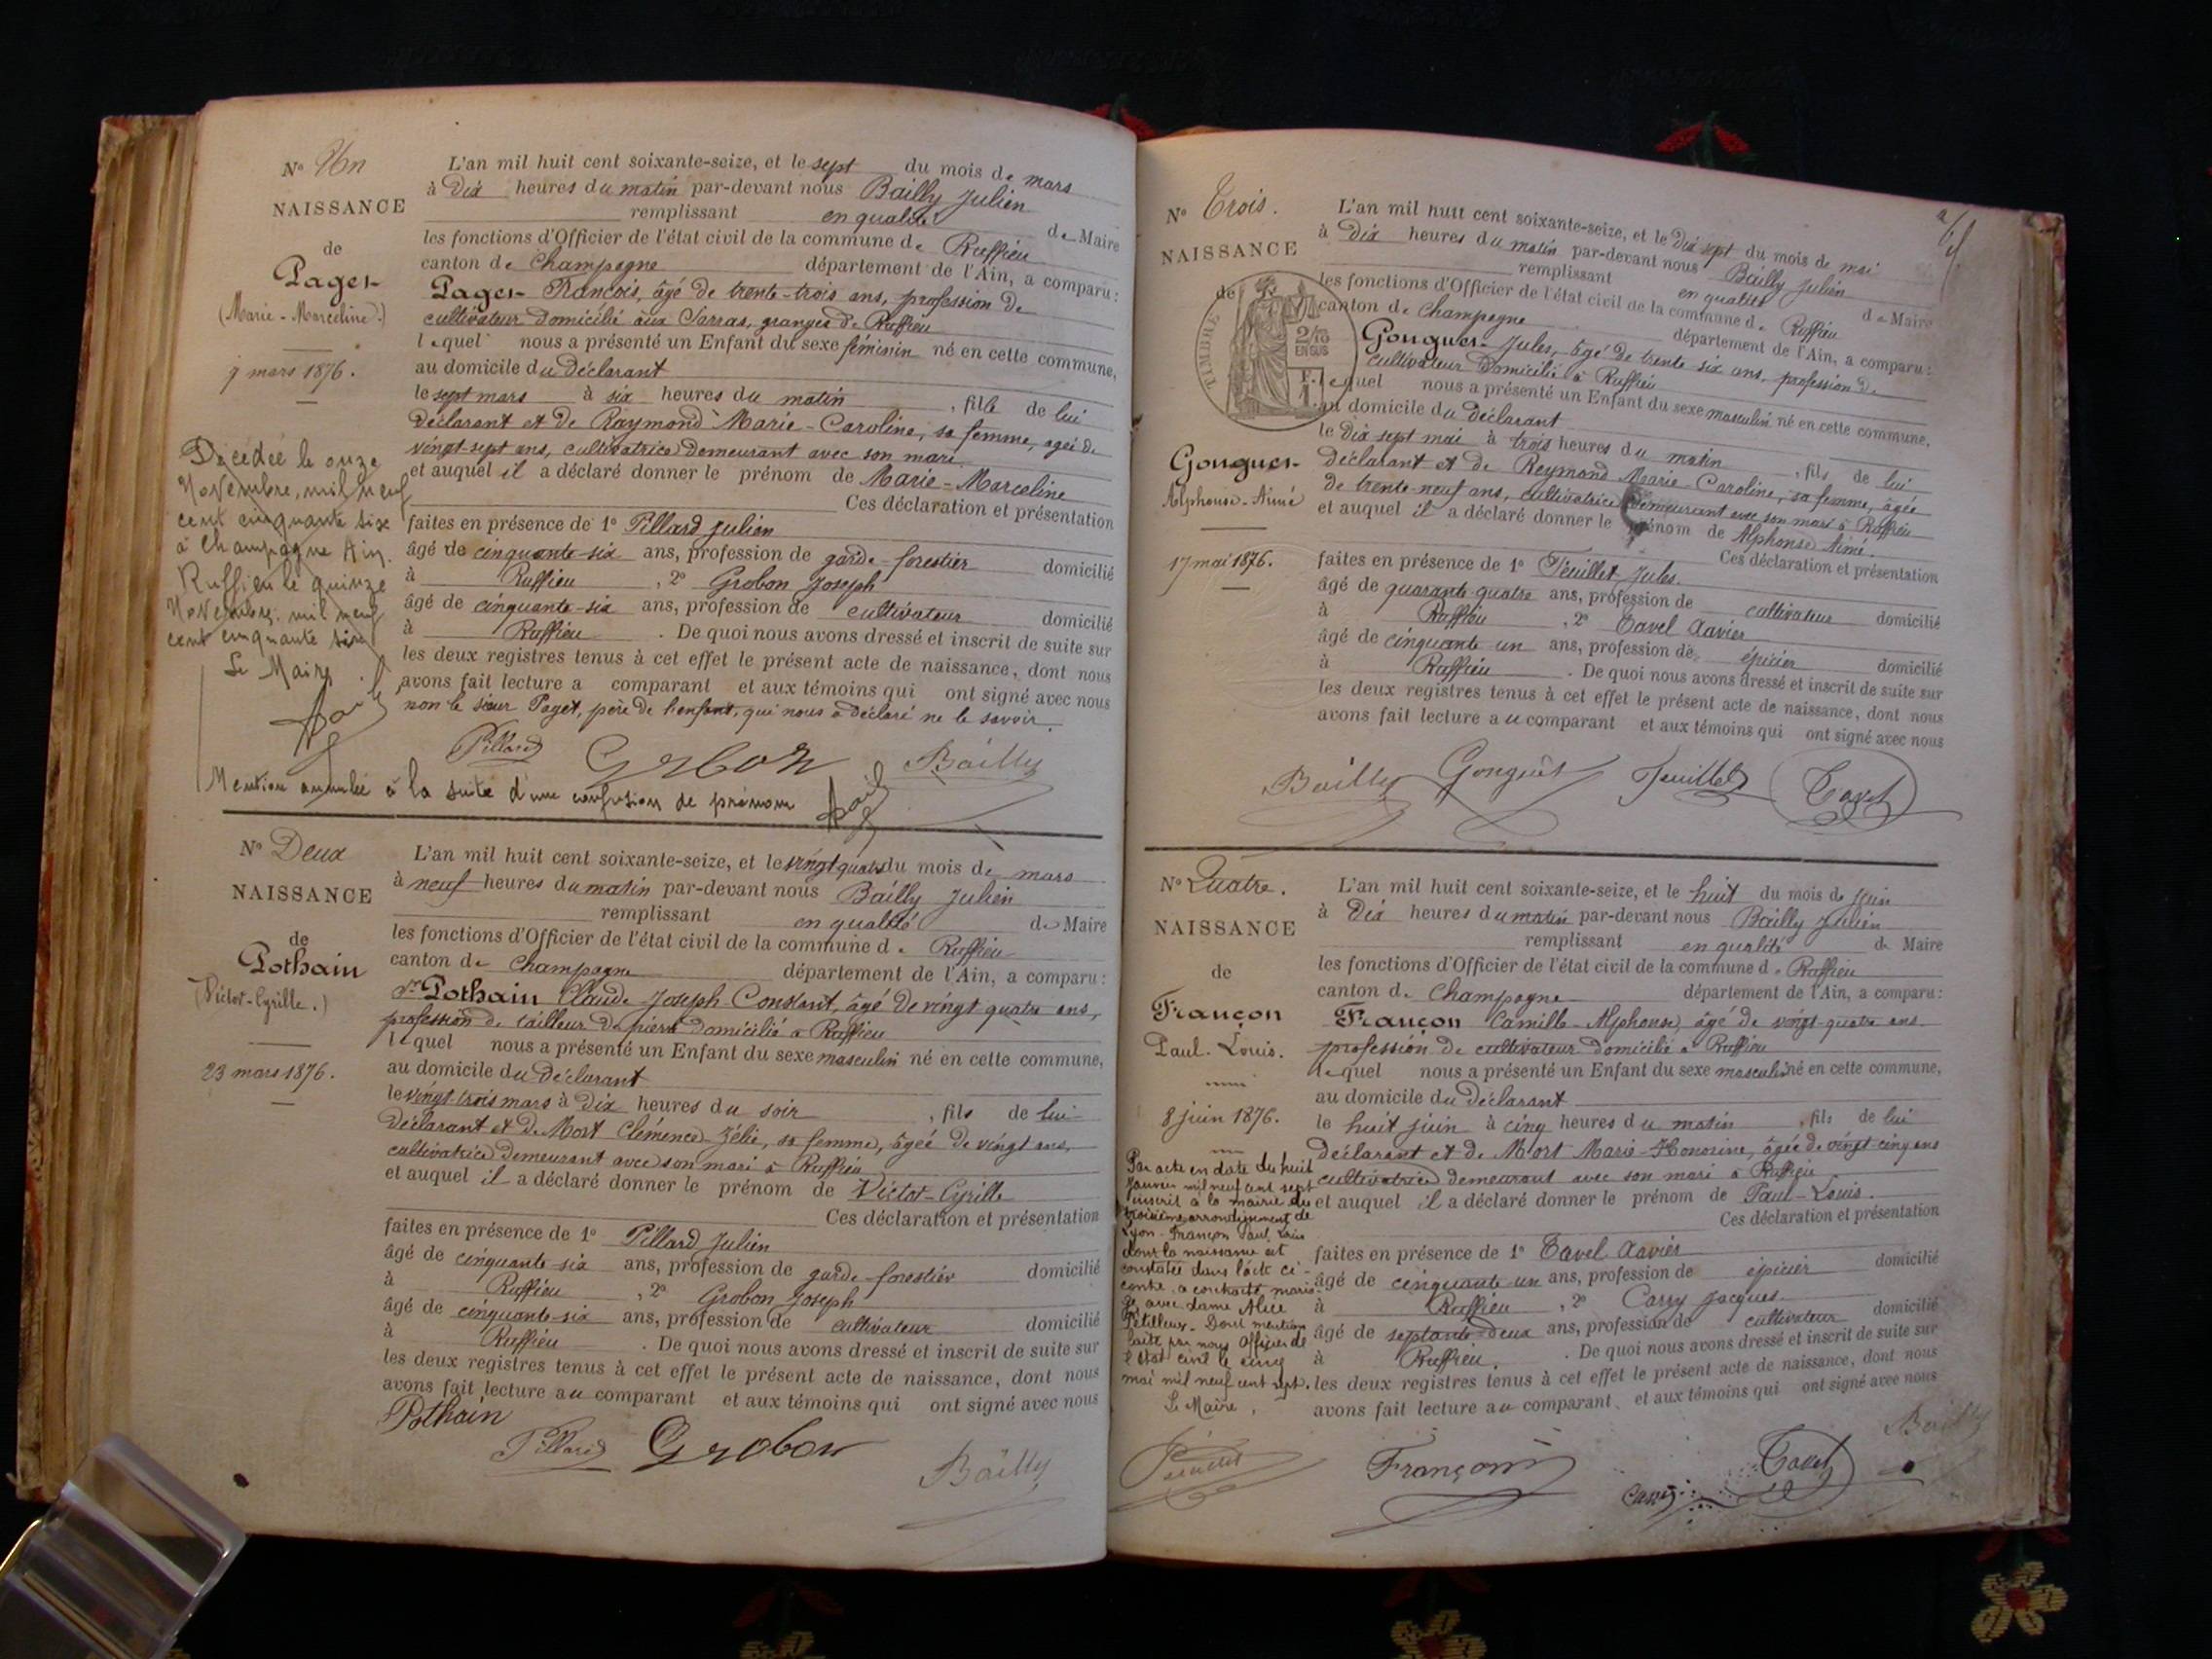 N° Un
NAISSANCE
de
Paget
(Marie-Marceline.)
7 mars 1876.
Décédée le onze
Novembre, mil neuf
cent cinquante six
à Champagne Ain.
Ruffieu le quinze
Novembre mil neuf
cent cinquante six
Le Maire
L'an mil huit cent soixante-seize, et le sept du mois de mars
à dix heures du matin par-devant nous Bailly Julien
remplissant en qualité de Maire
les fonctions d'Officier de l'état civil de la commune de Ruffieu
canton de Champagne département de l'Ain, a comparu:
Paget François, âgé de trente-trois ans, profession de
cultivateur domicilié aux Sarras, granges de Ruffieu
lequel nous a présenté un Enfant du sexe féminin né en cette commune,
au domicile du déclarant
le sept mars à six heures du matin, fille de lui
déclarant et de Raymond Marie-Caroline, sa femme, agée de
vingt-sept ans, cultivatrice demeurant avec son mari
et auquel il a déclaré donner le prénom de Marie-Marceline
Ces déclaration et présentation
faites en présence de 1° Pillard Julien
âgé de cinquante-six ans, profession de garde-forestier domicilié
à Ruffieu, 2° Grobon Joseph
âgé de cinquante-six ans, profession de cultivateur domicilié
à Ruffieu. De quoi nous avons dressé et inscrit de suite sur
les deux registres tenus à cet effet le présent acte de naissance, dont nous
avons fait lecture a comparant et aux témoins qui ont signé avec nous
non le sieur Paget, père de l'enfant, qui nous a déclaré ne le savoir.
Pillard Grobon Bailly
Mention annulée à la suite d'une confusion de prénom
N° Deux
NAISSANCE
de
Pothain
(Victor-Cyrille.)
23 mars 1876.
L'an mil huit cent soixante-seize, et le vingt quatre du mois de mars
à neuf heures du matin par-devant nous Bailly Julien
remplissant en qualité de Maire
les fonctions d'Officier de l'état civil de la commune de Ruffieu
canton de Champagne département de l'Ain, a comparu:
Sr Pothain Claude-Joseph Constant, âgé de vingt quatre ans,
profession de tailleur de pierre domicilié à Ruffieu
lequel nous a présenté un Enfant du sexe masculin né en cette commune,
au domicile du déclarant
le vingt-trois mars à dix heures du soir, fils de lui
déclarant et de Mort Clémence-Zélie, sa femme, âgée de vingt ans,
cultivatrice demeurant avec son mari à Ruffieu
et auquel il a déclaré donner le prénom de Victor-Cyrille
Ces déclaration et présentation
faites en présence de 1° Pillard Julien
âgé de cinquante-six ans, profession de garde-forestier domicilié
à Ruffieu, 2° Grobon Joseph
âgé de cinquante-six ans, profession de cultivateur domicilié
à Ruffieu. De quoi nous avons dressé et inscrit de suite sur
les deux registres tenus à cet effet le présent acte de naissance, dont nous
avons fait lecture au comparant et aux témoins qui ont signé avec nous
Pothain
Pillard Grobon Bailly
N° Trois.
NAISSANCE
de
TIMBRE
2/10
EN SUS
Gouguet
Alphonse-Aimé
17 mai 1876.
L'an mil huit cent soixante-seize, et le dix sept du mois de mai
à dix heures du matin par-devant nous Bailly Julien
remplissant en qualité de Maire
les fonctions d'Officier de l'état civil de la commune de Ruffieu
canton de Champagne département de l'Ain, a comparu:
Gouguet Jules, âgé de trente six ans, profession de
cultivateur domicilié à Ruffieu
lequel nous a présenté un Enfant du sexe masculin né en cette commune,
au domicile du déclarant
le dix sept mai à trois heures du matin, fils de lui
déclarant et de Reymond Marie-Caroline, sa femme, âgée
de trente-neuf ans, cultivatrice demeurant avec son mari à Ruffieu
et auquel il a déclaré donner le prénom de Alphonse Aimé.
Ces déclaration et présentation
faites en présence de 1° Feuillet Jules.
âgé de quarante-quatre ans, profession de cultivateur domicilié
à Ruffieu, 2° Tavel Xavier
âgé de cinquante un ans, profession de épicier domicilié
à Ruffieu. De quoi nous avons dressé et inscrit de suite sur
les deux registres tenus à cet effet le présent acte de naissance, dont nous
avons fait lecture au comparant et aux témoins qui ont signé avec nous
Bailly Gonguet Feuillet Tavel
N° Quatre.
NAISSANCE
de
Françon
Paul-Louis.
8 juin 1876.
Par acte en date du huit
Janvier mil neuf cent sept
inscrit à la mairie du
troisième arrondissement de
Lyon. Françon Paul Louis
dont la naissance est
constatée dans l'acte ci-
contre a contracté maria-
ge avec dame Alice
Pétilleux. Dont mention
faite par nous Officier de
l'état civil le cinq
mai mil neuf cent sept.
Le Maire,
L'an mil huit cent soixante-seize, et le huit du mois de juin
à dix heures du matin par-devant nous Bailly Julien
remplissant en qualité de Maire
les fonctions d'Officier de l'état civil de la commune de Ruffieu
canton de Champagne département de l'Ain, a comparu:
Françon Camille-Alphonse, âgé de vingt-quatre ans
profession de cultivateur domicilié à Ruffieu
lequel nous a présenté un Enfant du sexe masculin né en cette commune,
au domicile du déclarant
le huit juin à cinq heures du matin, fils de lui
déclarant et de Mort Marie-Honorine, âgée de vingt cinq ans
cultivatrice demeurant avec son mari à Ruffieu
et auquel il a déclaré donner le prénom de Paul-Louis.
Ces déclaration et présentation
faites en présence de 1° Tavel Xavier
âgé de cinquante un ans, profession de épicier domicilié
à Ruffieu, 2° Carry Jacques
âgé de septante-deux ans, profession de cultivateur domicilié
à Ruffieu. De quoi nous avons dressé et inscrit de suite sur
les deux registres tenus à cet effet le présent acte de naissance, dont nous
avons fait lecture au comparant, et aux témoins qui ont signé avec nous
Bailly
Françon Tavel
Carry